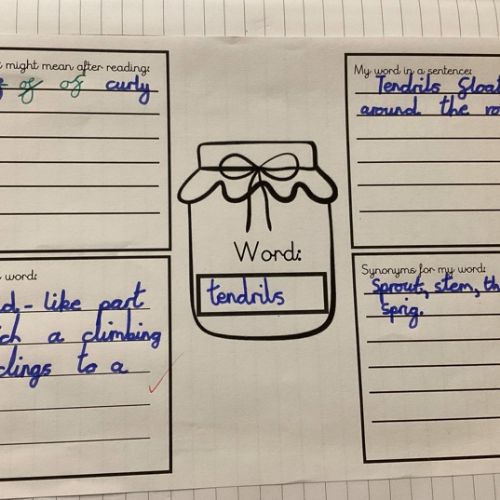 might mean after reading:
of of curly
My word in a sentence:
Tendrils float
around the
Word:
tendrils
word:
like part
a climbing
clings to a
Synonyms for my word:
Sprout, stem,
Sprig.